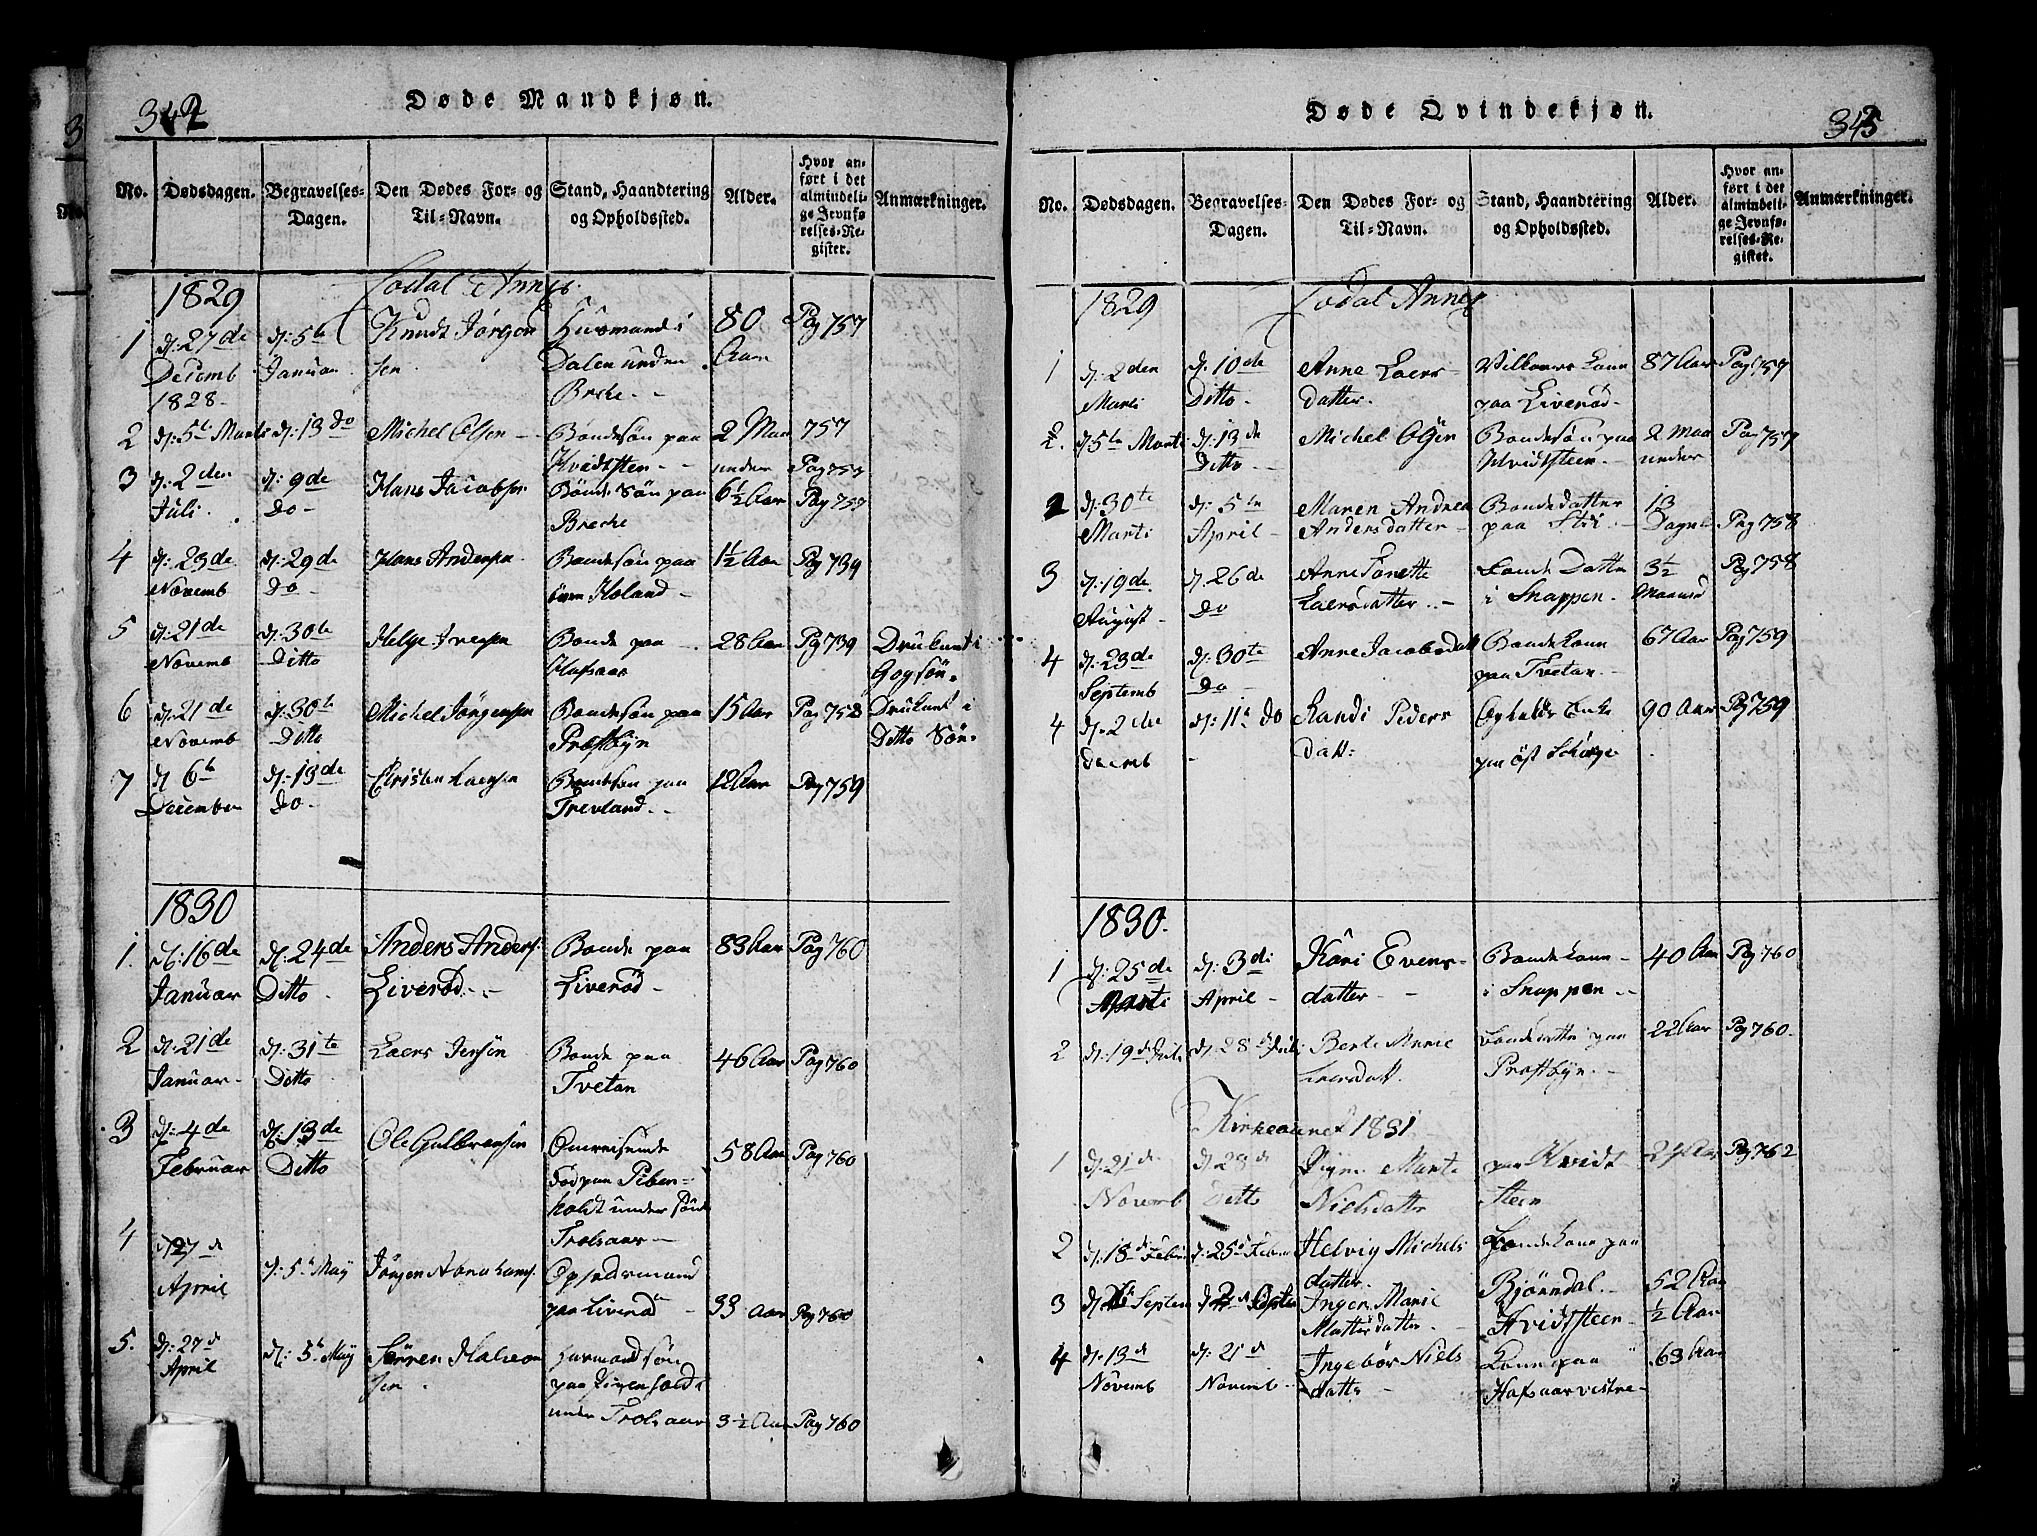 342
Døde Mandkjøn.
No. Dødsdagen. Begravelses-Dagen. Den Dødes For- og Til-Navn. Stand, Haandtering og Opholdssted. Alder. Hvor anført i det almindelige Jevnførelses-Register. Anmærkninger.
1829 Todal Annex
1 d: 27de d: 5te Knudt Jørgen Huusmand i 80 Pag 757
Decemb Januar sen Dalen under Aar
1828 Breke
2 d: 5te Marts d: 13 do Michel Olsen Bondesøn paa 2 Maa 757
Hvidsteen under
3 d: 2den d: 9de Hans Jacobsen Bonde Søn paa 6½ Aar Pag 757
Juli Do Breke Pag 757
4 d: 23de d: 29de Hans Andersen Bondesøn paa 1½ Aar Pag 739
Novemb Do Holand
5 d: 21de d: 30te Helge Iversen Bonde paa 28 Aar Pag 739 Druknet i
Novemb Ditto Hafsaas Gogsøn
6 d: 21de d: 30te Michel Jørgensen Bondesøn paa 15 Aar Pag 758 Druknet i
Novemb Ditto Præstbyn Ditto Søn
7 d: 6te d: 13de Christen Larsen Bondesøn paa 12 Aar Pag 759
December Do Trevland
1830
1. d: 16de d: 24de Anders Anders. Bonde paa 83 Aar Pag 760
Januar Ditto Liverød Liverød
2 d: 21de d: 31te Laers Jensøn Bonde paa 46 Aar Pag 760
Januar Ditto Tvetan
3 d: 4de d: 13de Ole Gulbransen Omreisende 58 Aar Pag 760
Februar Ditto fød paa Piben-
holdt under
Trolsaas
4 d: 27d d: 5te May Jørgen Abrahams. Opsedsmand
April paa Liverød 33 Aar Pag 760
5. d: 27d d: 5te May Søren Halvor Huusmandsøn
April sen paa
under Trolsaas 3½ Aar Pag 760
Døde Qvindekjøn.
343
No. Dødsdagen. Begravelses-Dagen. Den Dødes For- og Til-Navn. Stand, Haandtering og Opholdssted. Alder. Hvor anført i det almindelige Jevnførelses-Register. Anmærkninger.
1829 Todal Annex
1 d: 2den d: 10de Anne Laers- Vilkaars Kone 87 Aar Pag 757
Marti Ditto datter paa Liverød
2. d: 5te Marti d: 13de Michel Olsen Bondesøn paa 2 Maa Pag 757
Ditto Hvidtsteen under
2 d: 30te d: 5te Maren Andrea Bondedatter 13
Marti April Andersdatter paa Stri Dagnl Pag 758
3 d: 19de d: 26de Anne Tonette Bonde Datter 3½ Pag 758
August Do Laersdatter i Snappen Maaned
4 d: 23de d: 30te Anne Jacobsdatt Bondekone 67 Aar Pag 759
Septemb Do paa Tvetan
4 d: 2den d: 11te do Randi Peders Opholds Enke 90 Aar Pag 759
Decemb datt: paa Øst
1830.
1 d: 25de d: 3di Kari Evens- Bondekone 40 Aar Pag 760
Marti April datter i Snappen
2 d: 19de Juli d: 28de Juli Berte Marie Bondedatter paa 22 Aar Pag 760
Laersdatt. Præstbyn
Kirkeaaret 1831
1 d: 21de d: 28de Marte paa Hvidt 24 Aar Pag 762
Novemb Ditto Nielsdatter Steen
2 d: 18de Febru d: 25de Febru Helvig Michels Bondekone paa
datter. Bjørndal 52 Aar
3 Septem Septem Inger Marie Hvidtsteen ½ Aar
Mattisdatter
4 d: 13de d: 21de Ingebor Niels Kone paa 63 Aar
Novemb Novemb datter Hafsaas vestre